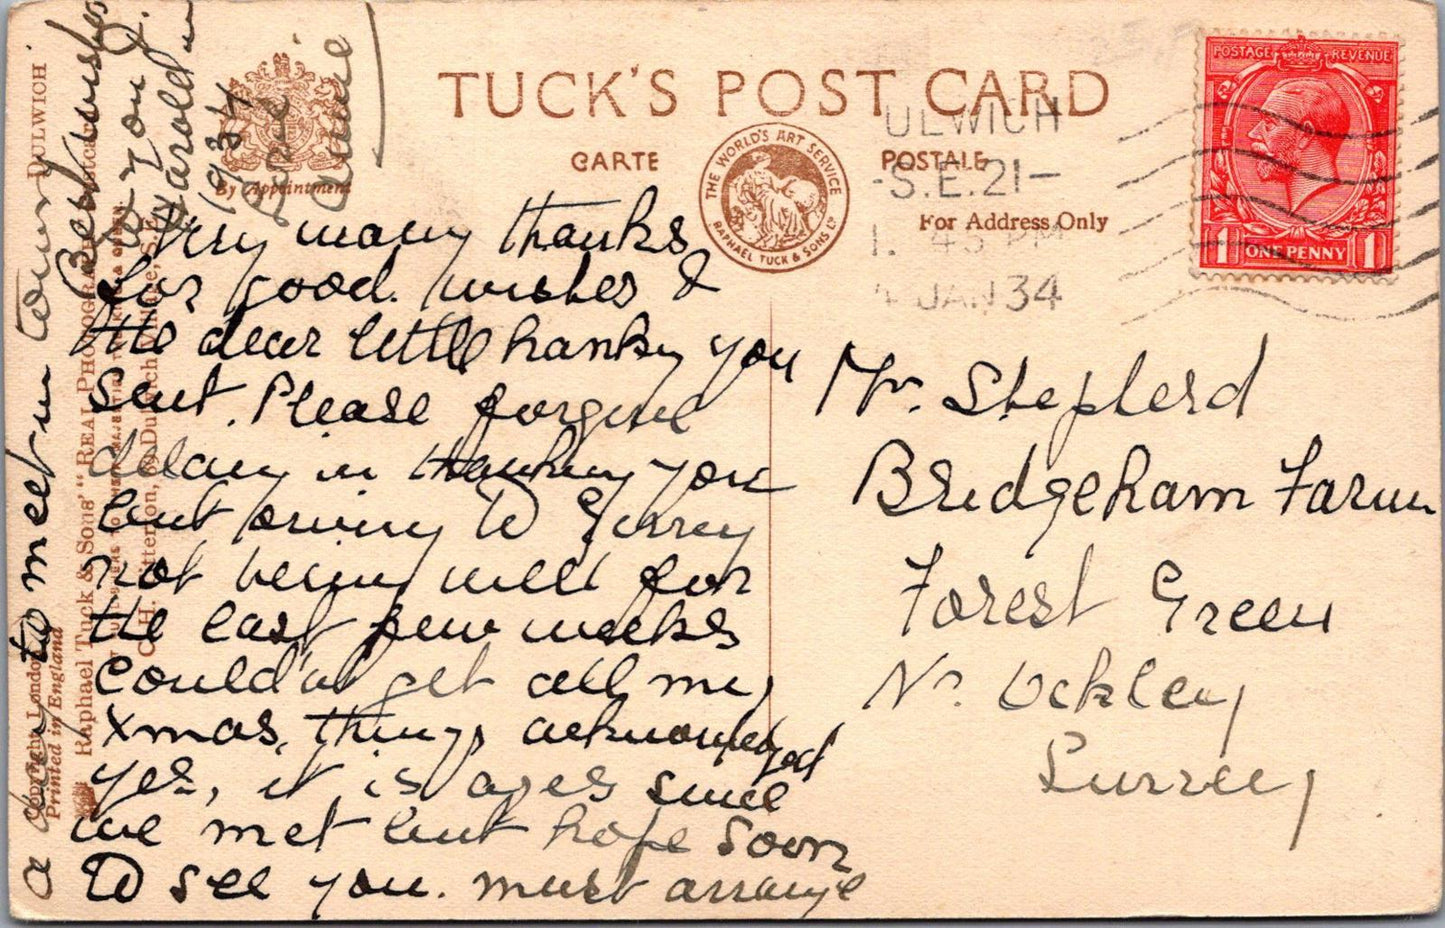 TUCK'S POST CARD
CARTE
POSTALE
For Address Only
By Appointment
THE WORLD'S ART SERVICE
RAPHAEL TUCK & SONS LD
ULWICH
S.E.21
1. 45 PM
JAN 34
POSTAGE REVENUE
1 ONE PENNY 1
Very many thanks
for good wishes &
the dear little hanky you
sent. Please forgive
delay in thanking you
but owing to Surrey
not being well for
the last few weeks
couldn't get all my
Xmas things acknowledged
Yes, it is ages since
we met but hope soon
to see you. must arrange
a day to meet in town
Best wishes
to you &
Harold in
1934
Love
Mr. Shepherd
Bridgeham Farm
Forest Green
Nr Ockley
Surrey
DULWICH
Raphael Tuck & Sons' "REAL PHOTOGRAPH"
Copyright London
Printed in England